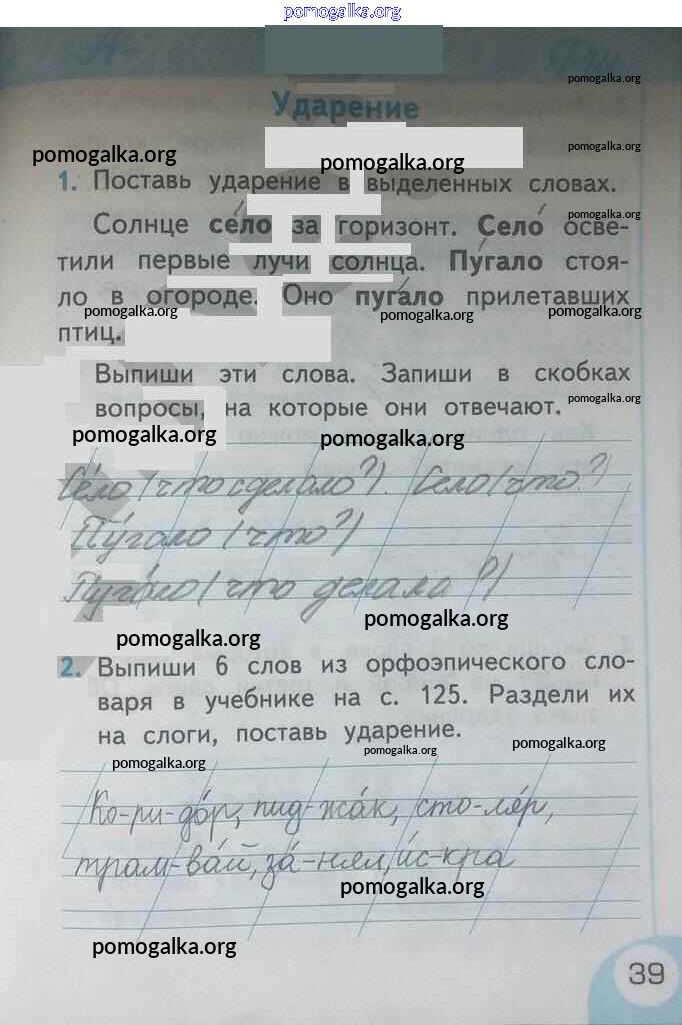 pomogalka.org
pomogalka.org
Ударение
pomogalka.org
pomogalka.org
pomogalka.org
1. Поставь ударение в выделенных словах.
Солнце се́ло за горизонт. Село́ осве-
pomogalka.org
тили первые лучи солнца. Пу́гало стоя-
ло в огороде. Оно пуга́ло прилетавших
pomogalka.org
pomogalka.org
pomogalka.org
птиц.
Выпиши эти слова. Запиши в скобках
вопросы, на которые они отвечают.
pomogalka.org
pomogalka.org
pomogalka.org
Се́ло (что сделало?). Село (что?)
Пу́гало (что?)
Пуга́ло (что делала?)
pomogalka.org
pomogalka.org
2. Выпиши 6 слов из орфоэпического сло-
варя в учебнике на с. 125. Раздели их
на слоги, поставь ударение.
pomogalka.org
pomogalka.org
pomogalka.org
Ко-ри-до́р, пид-жа́к, сто-ля́р,
трам-ва́й, за́-нял, и́с-кра
pomogalka.org
pomogalka.org
39